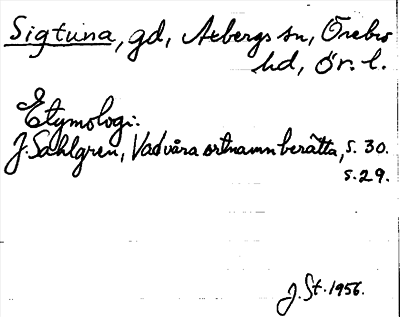 Sigtuna, gd, Axbergs sn, Örebro
hd, ör. l.
Etymologi:
J. Sahlgren, Vad våra ortnamn berätta, s. 30.
s. 29.
J. St. 1956.